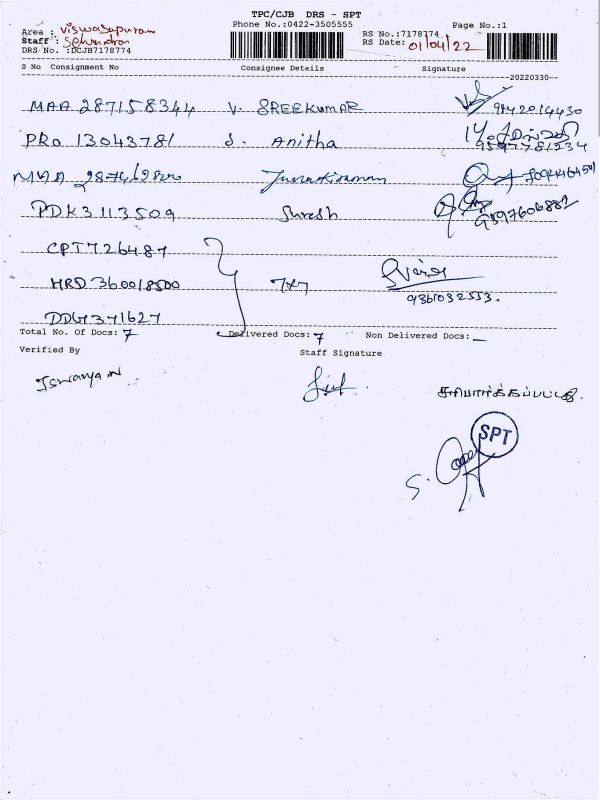 TPC/CJB DRS - SPT
Phone No.:0422-3505555
Page No.:1
Area : Viswasapuram
Staff :
DRS No. :DCJB7178774
RS No.:7178774
RS Date: 01/04/22
S No Consignment No Consignee Details Signature
--20220330--
MAA 287158344 V. SREEKUMAR 9842014430
PRO 13043781 S. Anitha 9597781234
MAA
PDK3113509 Suresh 9597606882
CPT726487
HRD 360018500 7x7 9361032553.
DDG1371627
Total No. Of Docs: 7 Delivered Docs: 7 Non Delivered Docs: —
Verified By Staff Signature
Iswarya N
சரிபார்க்கப்பட்டது.
SPT
S.